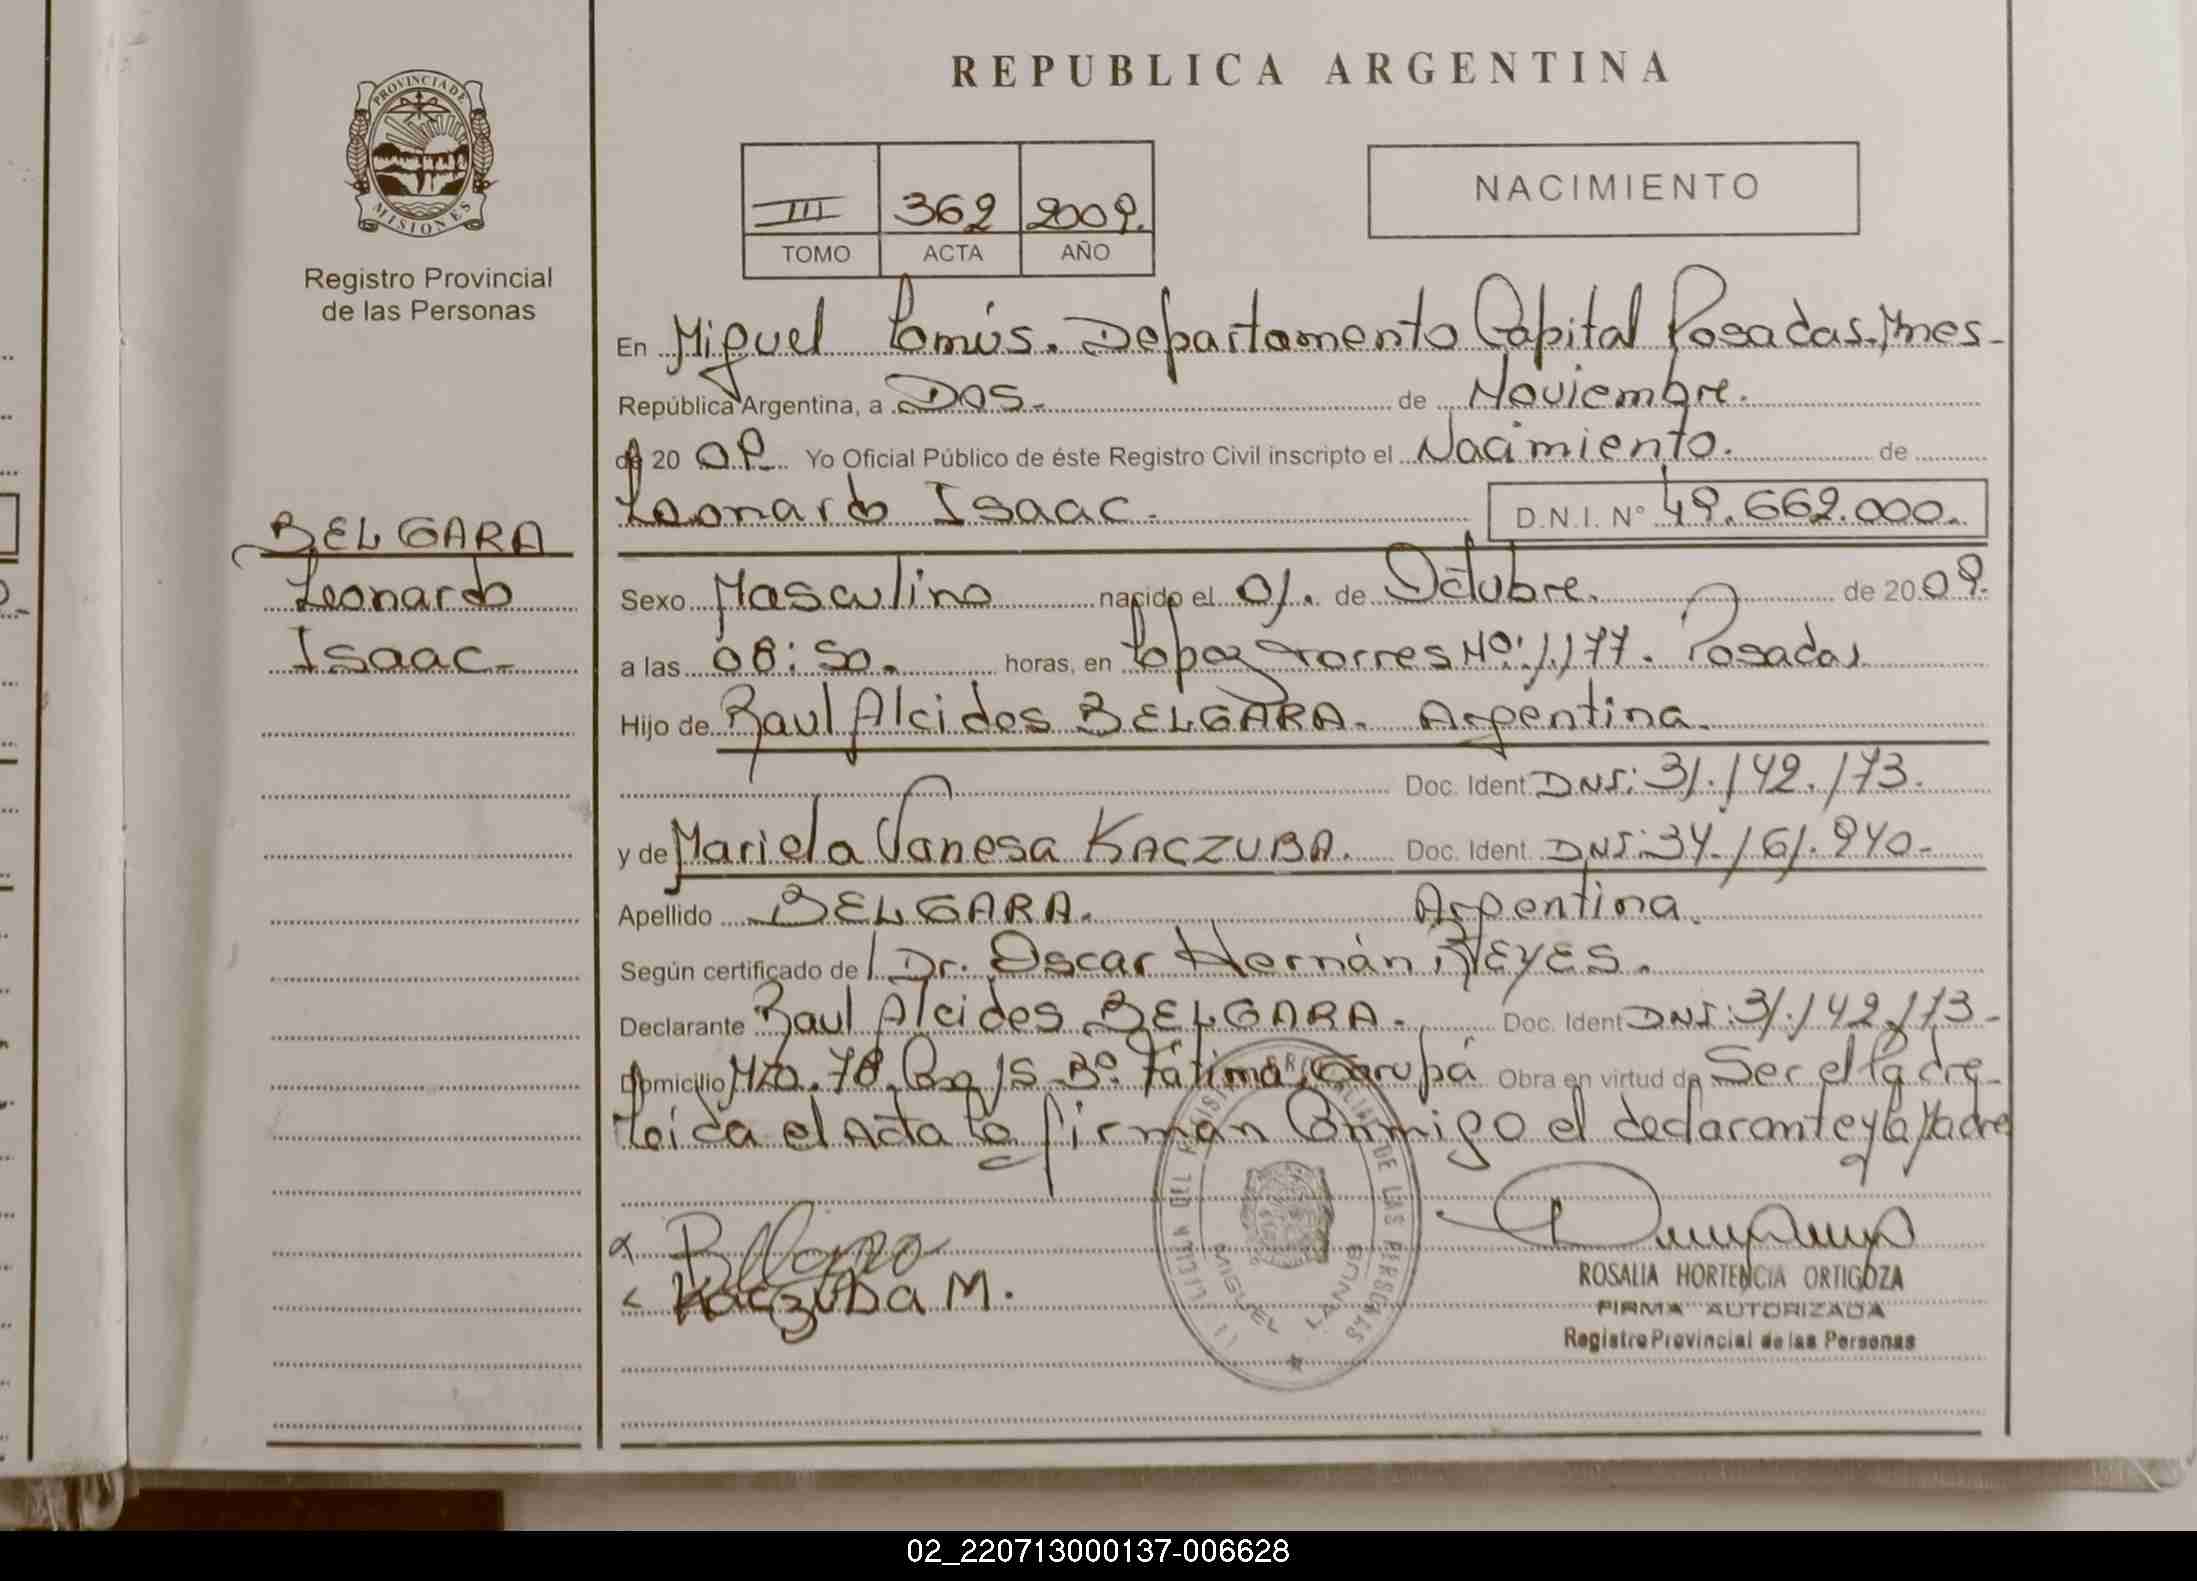 REPUBLICA ARGENTINA
PROVINCIA DE
MISIONES
Registro Provincial
de las Personas
III 362 2009.
TOMO ACTA AÑO
NACIMIENTO
En Miguel Lanús. Departamento Capital Posadas. Mnes-
República Argentina, a Dos.- de Noviembre.
de 20 09. Yo Oficial Público de éste Registro Civil inscripto el Nacimiento. de
Leonardo Isaac.- D.N.I. N° 49.662.000.
BELGARA
Leonardo
Isaac.-
Sexo Masculino nacido el 01. de Octubre. de 2009.
a las 08:50. horas, en López Torres Nº: 1.177. Posadas
Hijo de Raul Alcides BELGARA. Argentina.
Doc. Ident. DNI: 31.142.173.
y de Mariela Vanesa KACZUBA. Doc. Ident. DNI: 34.161.940.-
Apellido BELGARA. Argentina.
Según certificado de Dr. Oscar Hernán REYES.
Declarante Raul Alcides BELGARA. Doc. Ident DNI: 31.142.173-
Domicilio Mza. 78. 15 Bº. Fátima, Garupá Obra en virtud de Ser el Padre-
Leída el Acta la firman Conmigo el declarante y la Madre
Kaczuba M.
MIGUEL LANUS
ROSALIA HORTENCIA ORTIGOZA
FIRMA AUTORIZADA
Registro Provincial de las Personas
02_220713000137-006628